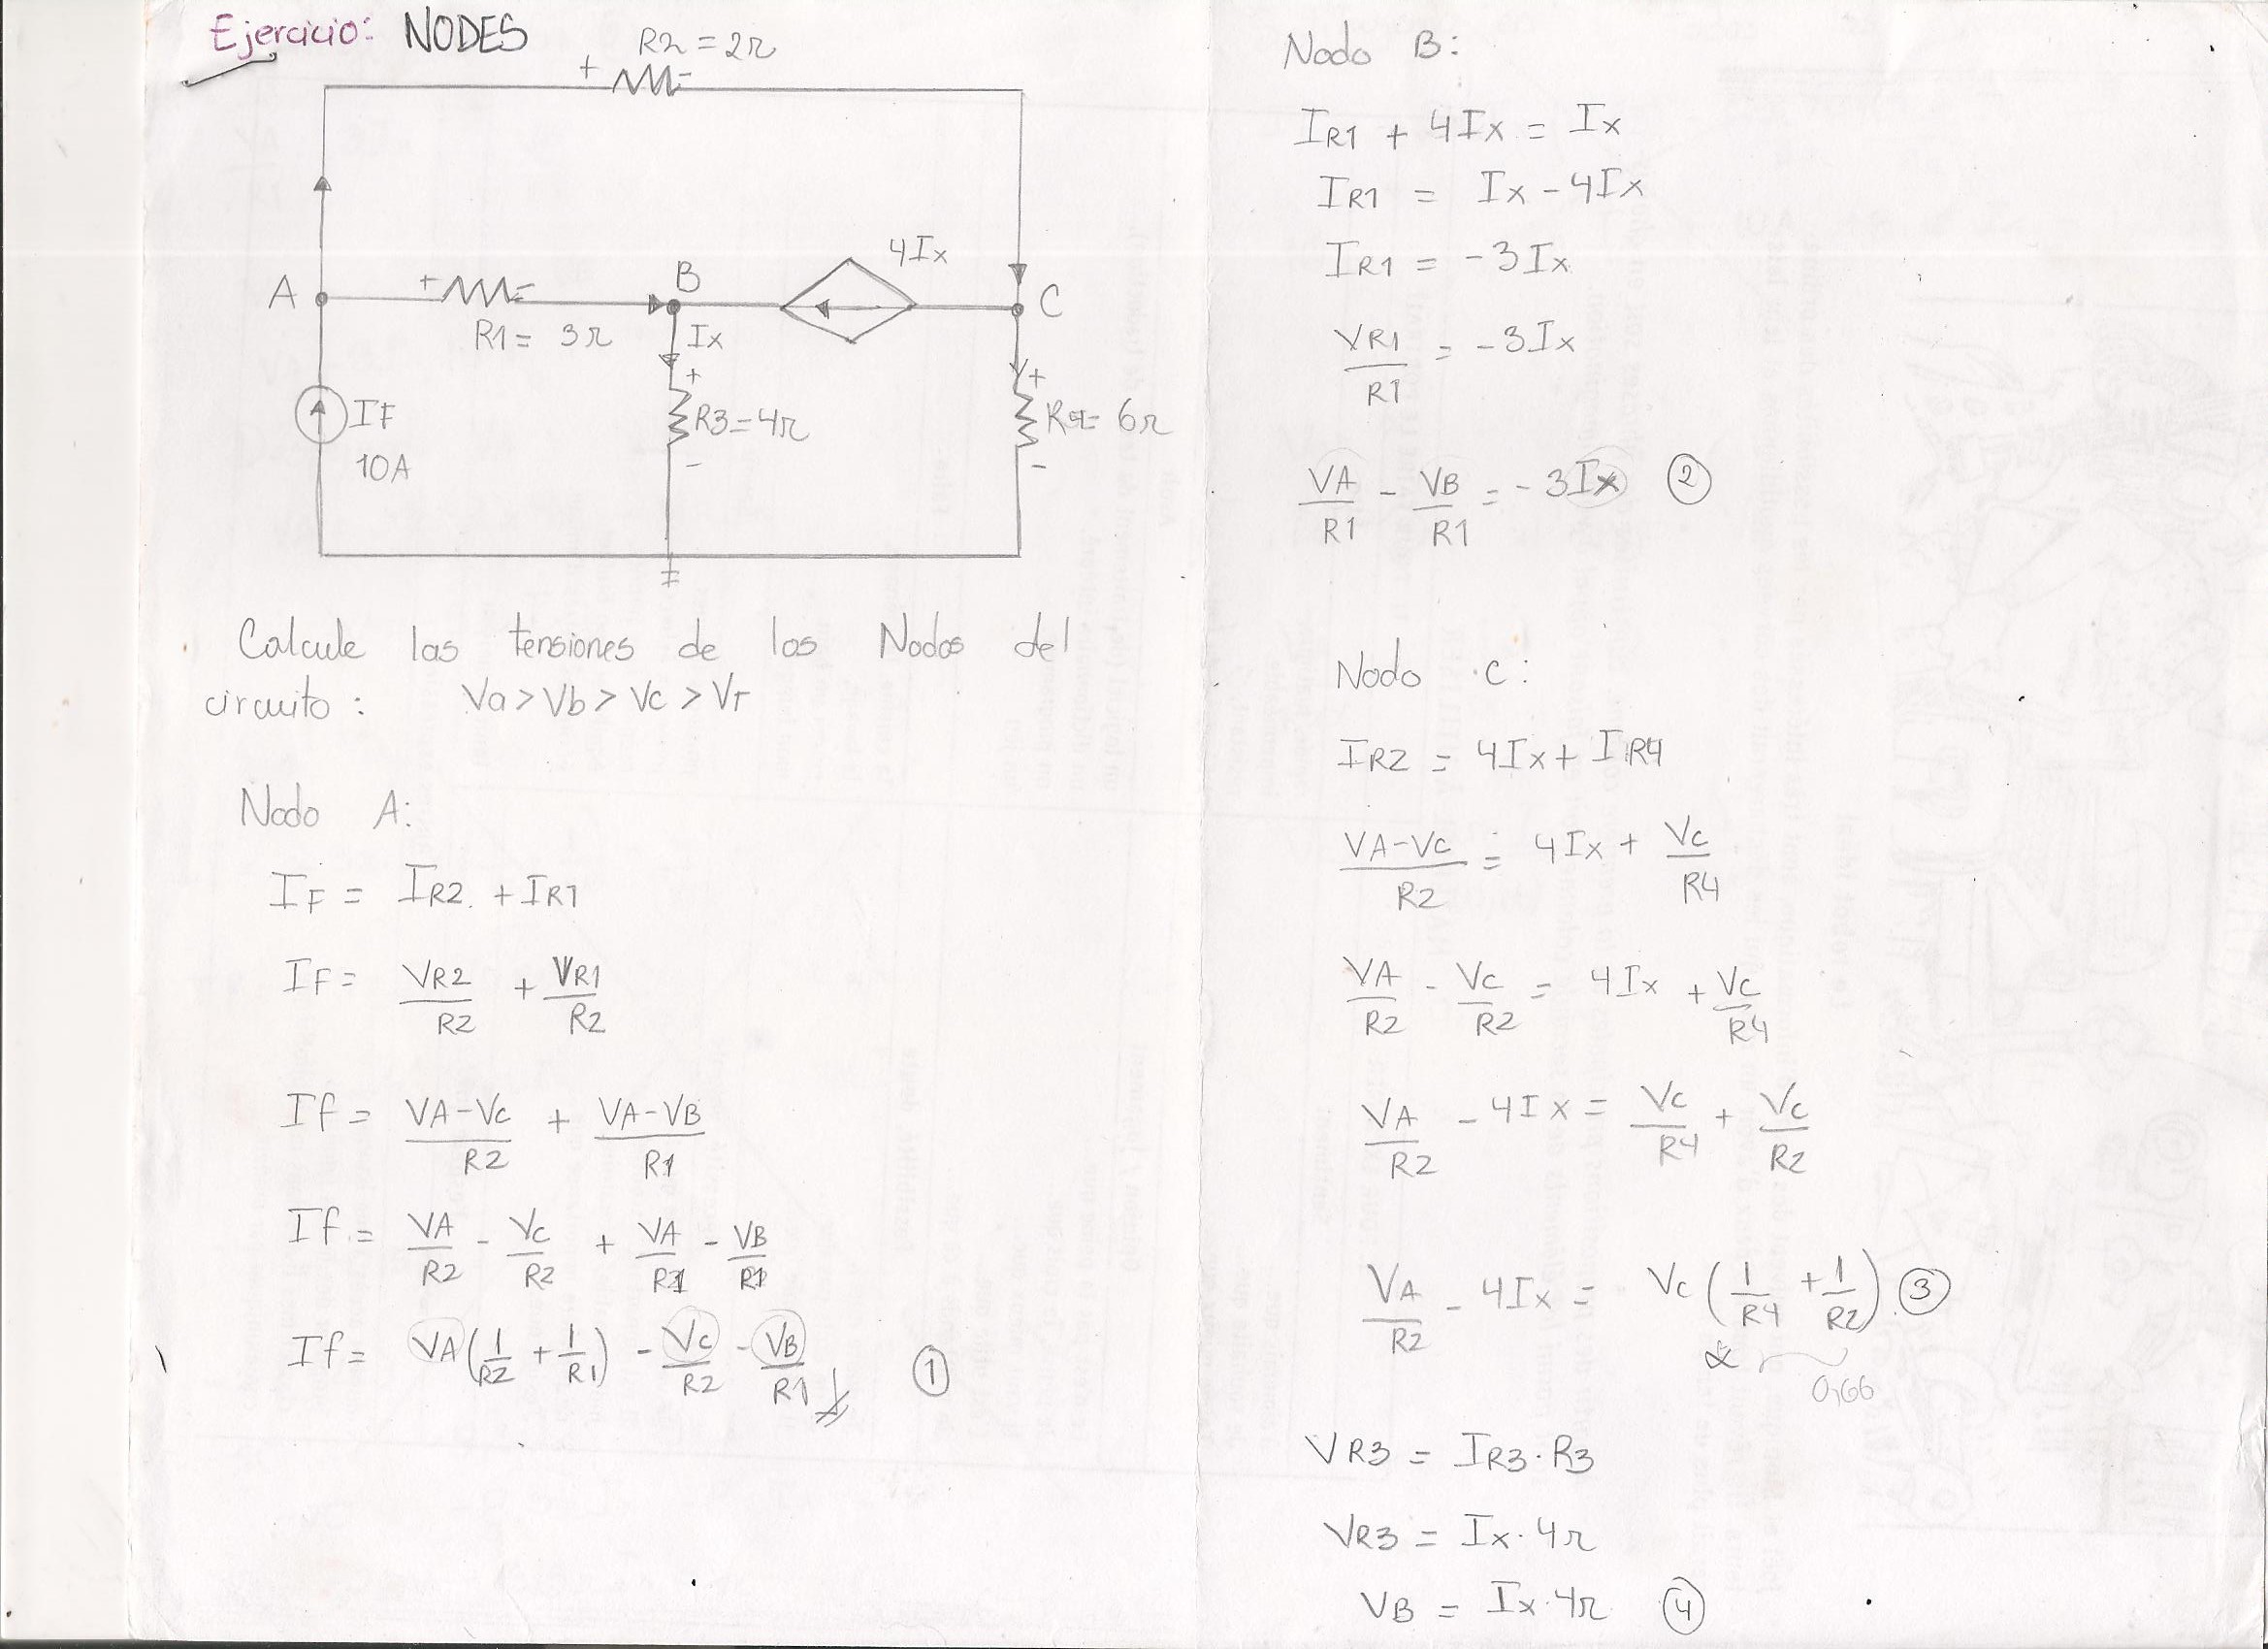 Ejercicio: NODES
R2 = 2Ω
+ -
4Ix
A
+ -
B
C
R1 = 3Ω
Ix
+
+
IF
R3=4Ω
R4= 6Ω
10A
-
-
Calcule las tensiones de los Nodos del
circuito: Va > Vb > Vc > Vr
Nodo A:
IF = IR2 + IR1
IF = VR2/R2 + VR1/R2
If = VA-VC/R2 + VA-VB/R1
If = VA/R2 - VC/R2 + VA/R1 - VB/R1
If = VA(1/R2 + 1/R1) - VC/R2 - VB/R1 ①
Nodo B:
IR1 + 4Ix = Ix
IR1 = Ix - 4Ix
IR1 = -3Ix
VR1/R1 = -3Ix
VA/R1 - VB/R1 = -3Ix ②
Nodo C:
IR2 = 4Ix + IR4
VA-VC/R2 = 4Ix + VC/R4
VA/R2 - VC/R2 = 4Ix + VC/R4
VA/R2 - 4Ix = VC/R4 + VC/R2
VA/R2 - 4Ix = VC(1/R4 + 1/R2) ③
0,66
VR3 = IR3·R3
VR3 = Ix·4Ω
VB = Ix·4Ω ④